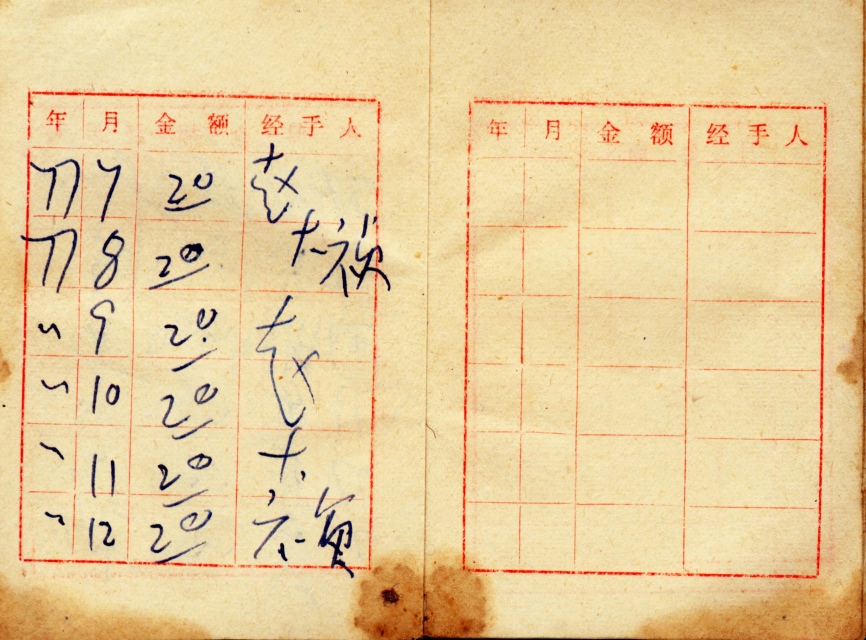 年 月 金 额 经 手 人
77 7 20 赵
77 8 20 大祯
〃 9 20 赵
〃 10 20
〃 11 20 大
〃 12 20
年 月 金 额 经 手 人